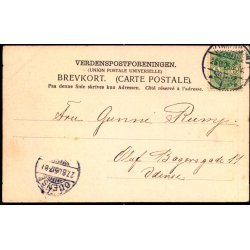 VERDENSPOSTFORENINGEN.
(UNION POSTALE UNIVERSELLE)
BREVKORT. (CARTE POSTALE).
Paa denne Side skrives kun Adressen. Côté réservé à l'adresse.
Fru Gunni Rump.
Oluf Bagersgade
Odense
ODENSE